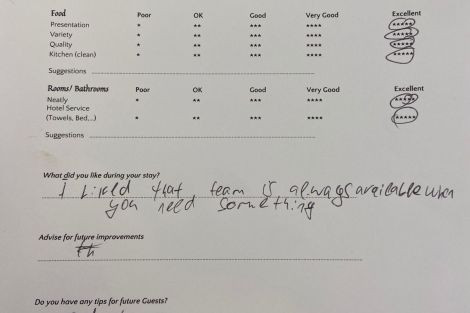 Food Poor OK Good Very Good Excellent
Presentation * ** *** **** *****
Variety * ** *** **** *****
Quality * ** *** **** *****
Kitchen (clean) * ** *** **** *****
Suggestions
Rooms/ Bathrooms Poor OK Good Very Good Excellent
Neatly * ** *** **** *****
Hotel Service
(Towels, Bed,...) * ** *** **** *****
Suggestions
What did you like during your stay?
I liked that team is always available when
you need something
Advise for future improvements
Do you have any tips for future Guests?